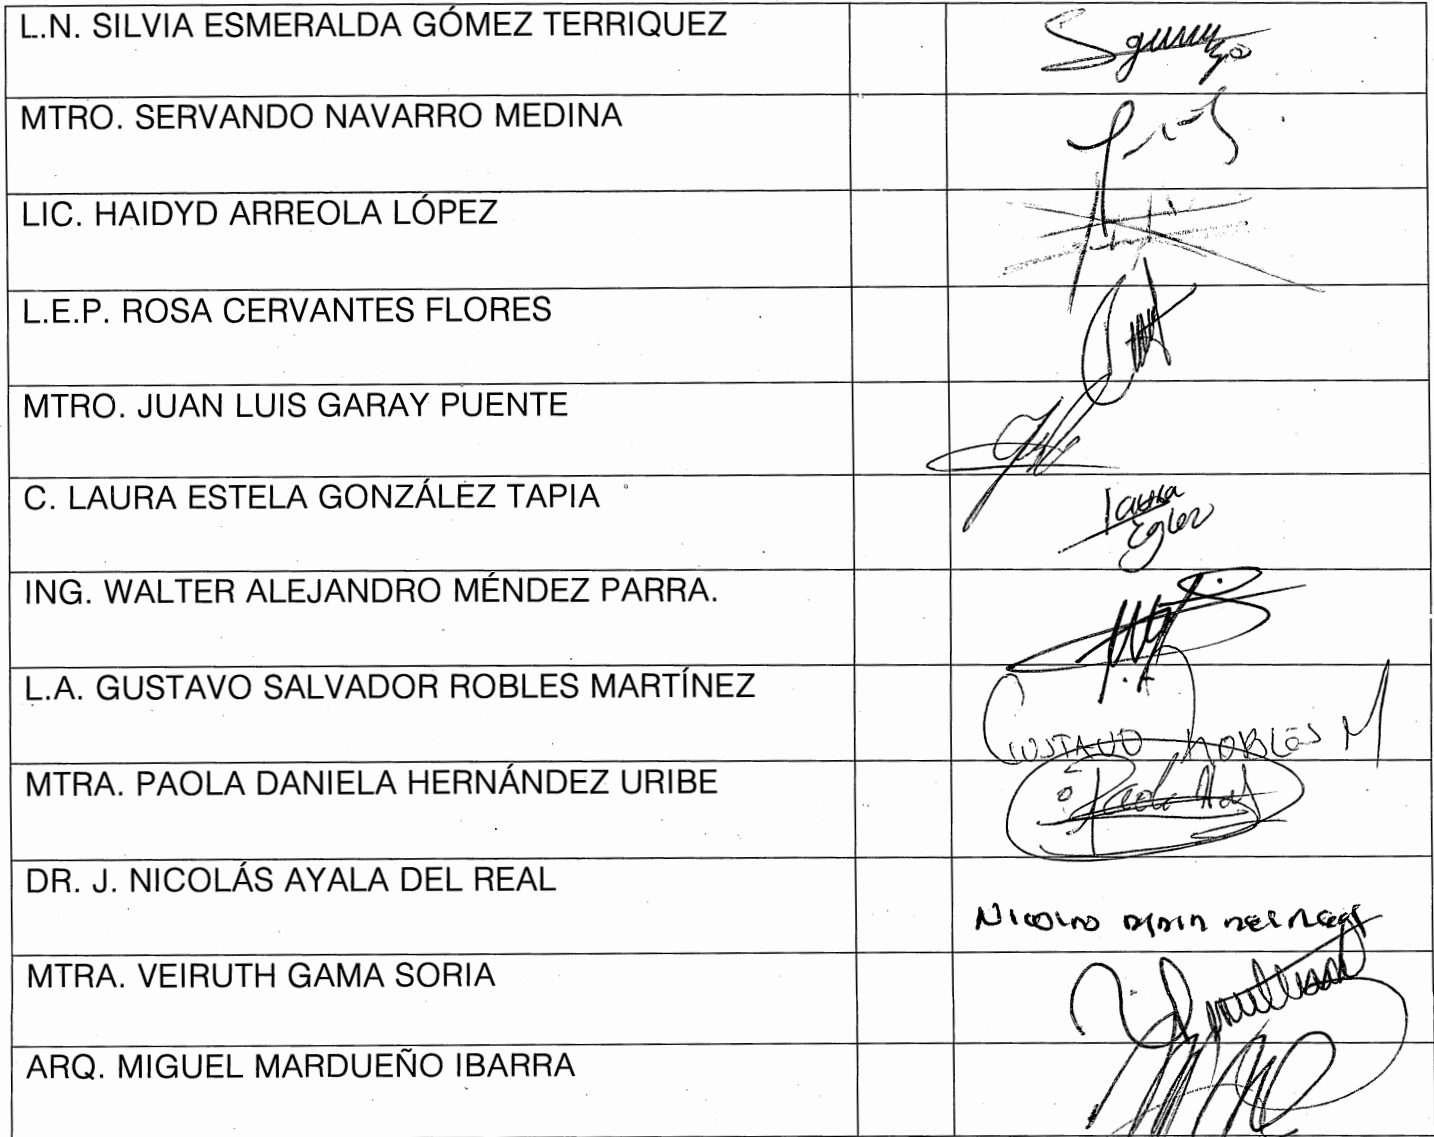 L.N. SILVIA ESMERALDA GÓMEZ TERRIQUEZ
MTRO. SERVANDO NAVARRO MEDINA
LIC. HAIDYD ARREOLA LÓPEZ
L.E.P. ROSA CERVANTES FLORES
MTRO. JUAN LUIS GARAY PUENTE
C. LAURA ESTELA GONZÁLEZ TAPIA
Laura
ING. WALTER ALEJANDRO MÉNDEZ PARRA.
L.A. GUSTAVO SALVADOR ROBLES MARTÍNEZ
GUSTAVO ROBLES M
MTRA. PAOLA DANIELA HERNÁNDEZ URIBE
Paola
DR. J. NICOLÁS AYALA DEL REAL
NICOLAS AYALA DEL REAL
MTRA. VEIRUTH GAMA SORIA
ARQ. MIGUEL MARDUEÑO IBARRA